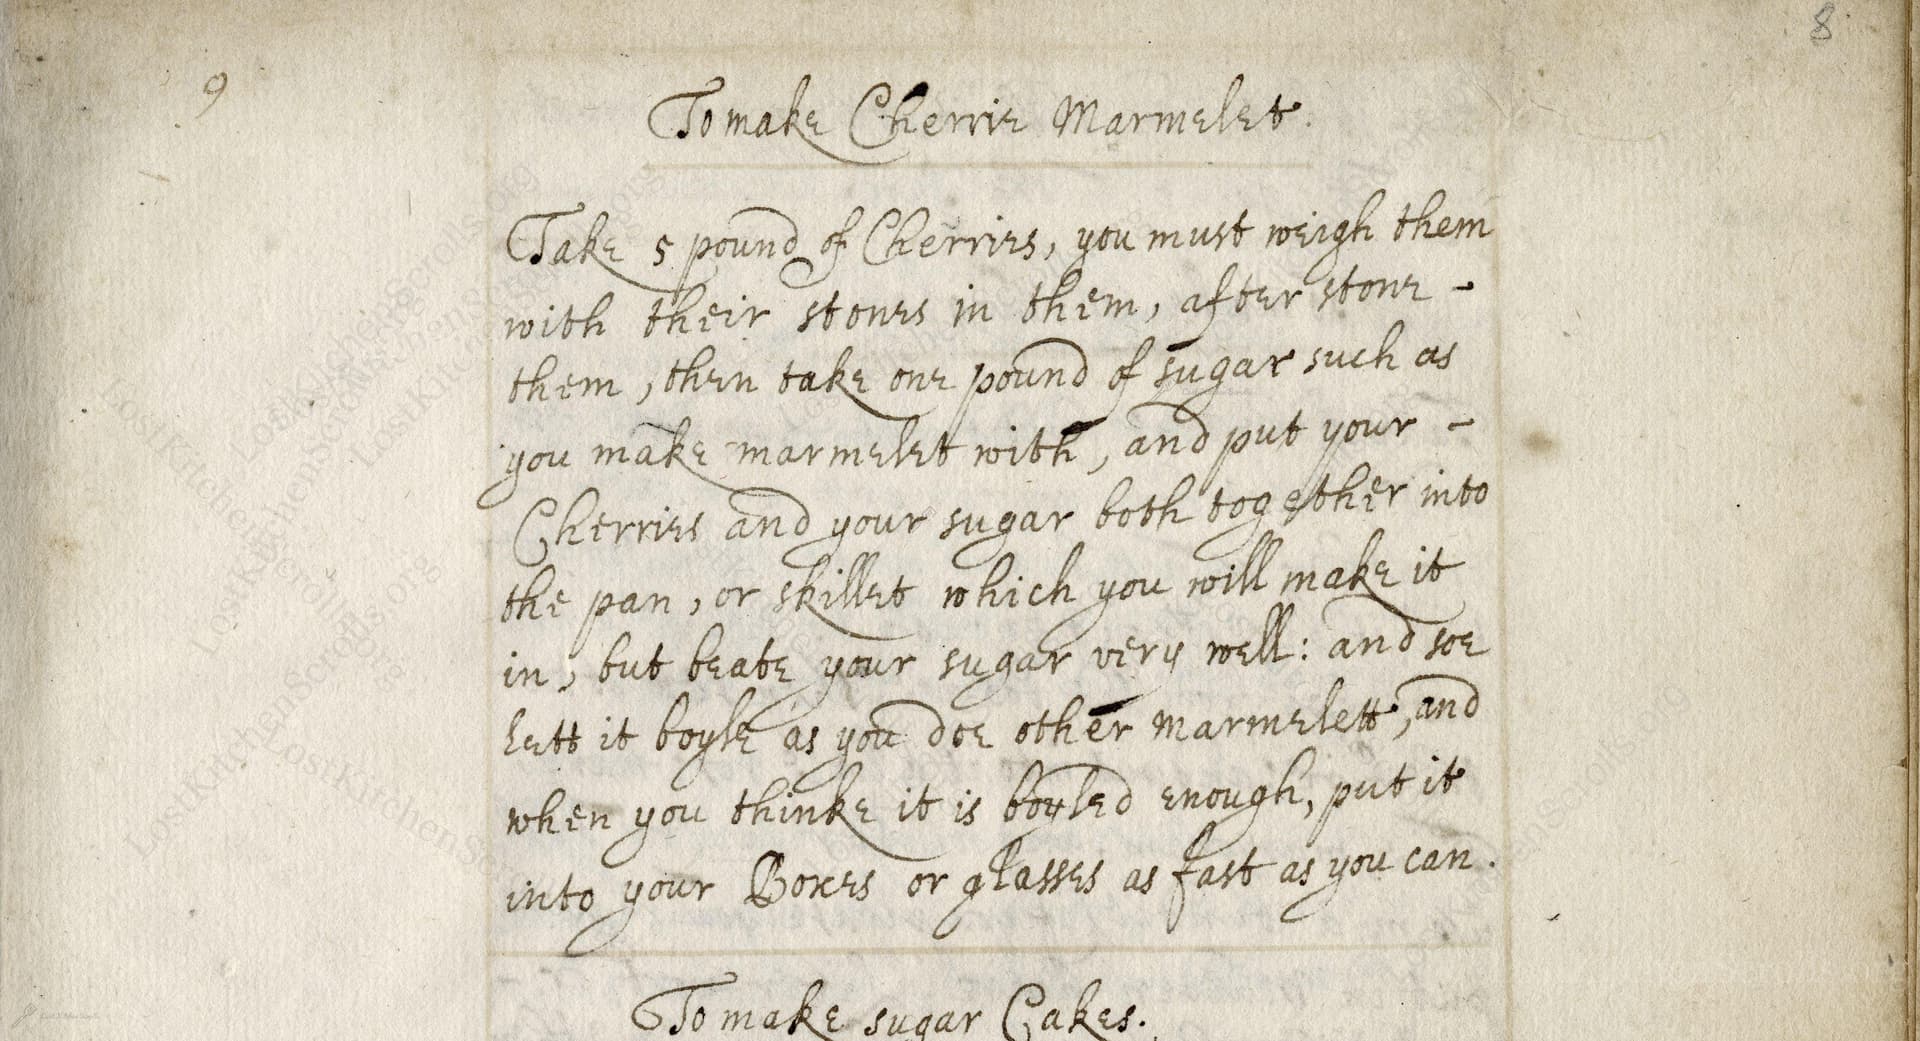 8
9
To make Cherrie Marmelet.
Take 5 pound of Cherries, you must weigh them
with their stones in them, after stone -
them, then take one pound of sugar such as
you make marmelet with, and put your -
Cherries and your sugar both together into
the pan, or skillet which you will make it
in, but beate your sugar very well: and soe
lett it boyle as you doe other marmelett, and
when you thinke it is boyled enough, put it
into your Boxes or glasses as fast as you can.
To make sugar Cakes.
LostKitchenScrolls.org